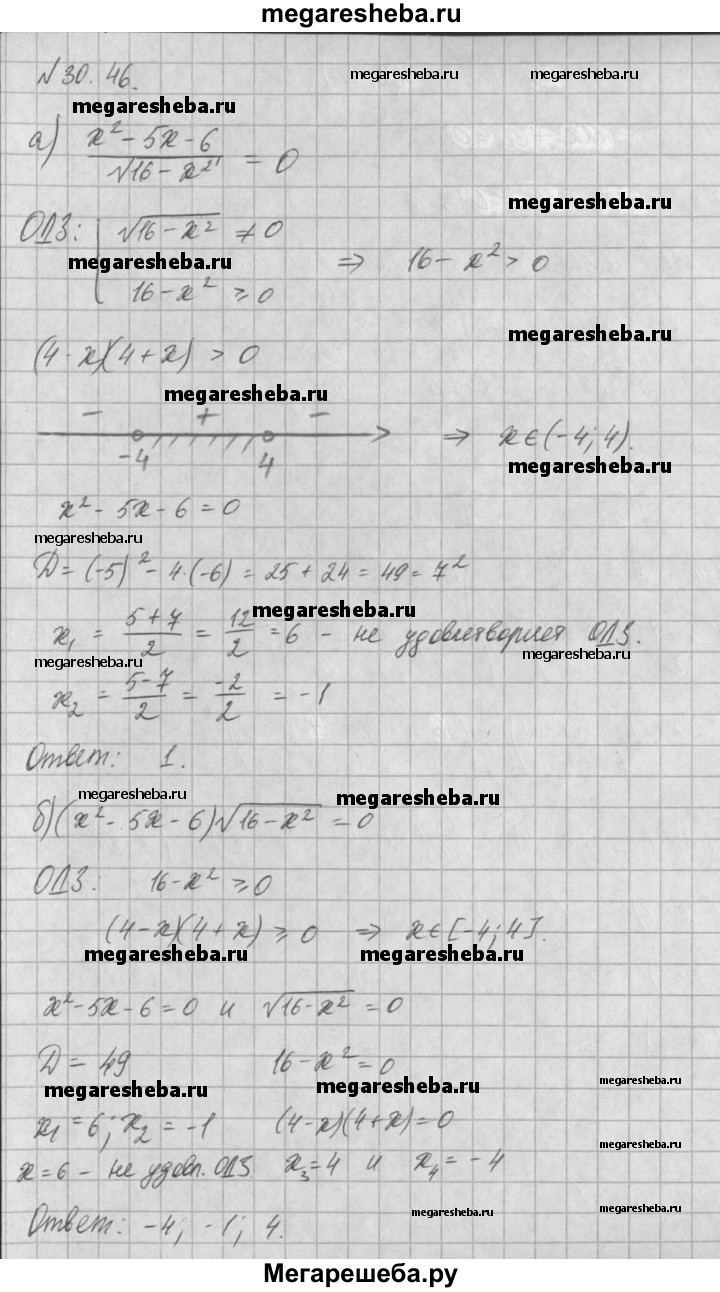 megaresheba.ru
№30.46.
megaresheba.ru megaresheba.ru
megaresheba.ru
а) (x² - 5x - 6)/√(16 - x²) = 0
megaresheba.ru
ОДЗ: { √(16 - x²) ≠ 0
megaresheba.ru
16 - x² ≥ 0 ⇒ 16 - x² > 0
megaresheba.ru
(4 - x)(4 + x) > 0
megaresheba.ru
- + -
-4 4 ⇒ x∈(-4; 4).
megaresheba.ru
x² - 5x - 6 = 0
megaresheba.ru
Д = (-5)² - 4·(-6) = 25 + 24 = 49 = 7²
megaresheba.ru
x₁ = (5+7)/2 = 12/2 = 6 - не удовлетворяет ОДЗ.
megaresheba.ru megaresheba.ru
x₂ = (5-7)/2 = -2/2 = -1
Ответ: 1.
megaresheba.ru megaresheba.ru
б) (x² - 5x - 6)√(16 - x²) = 0
ОДЗ: 16 - x² ≥ 0
(4 - x)(4 + x) ≥ 0 ⇒ x∈[-4; 4].
megaresheba.ru megaresheba.ru
x² - 5x - 6 = 0 и √(16 - x²) = 0
Д = 49 16 - x² = 0
megaresheba.ru megaresheba.ru megaresheba.ru
x₁ = 6; x₂ = -1 (4 - x)(4 + x) = 0
megaresheba.ru
x = 6 - не удовл. ОДЗ x₃ = 4 и x₄ = -4
megaresheba.ru megaresheba.ru
Ответ: -4; -1; 4.
Мегарешеба.ру